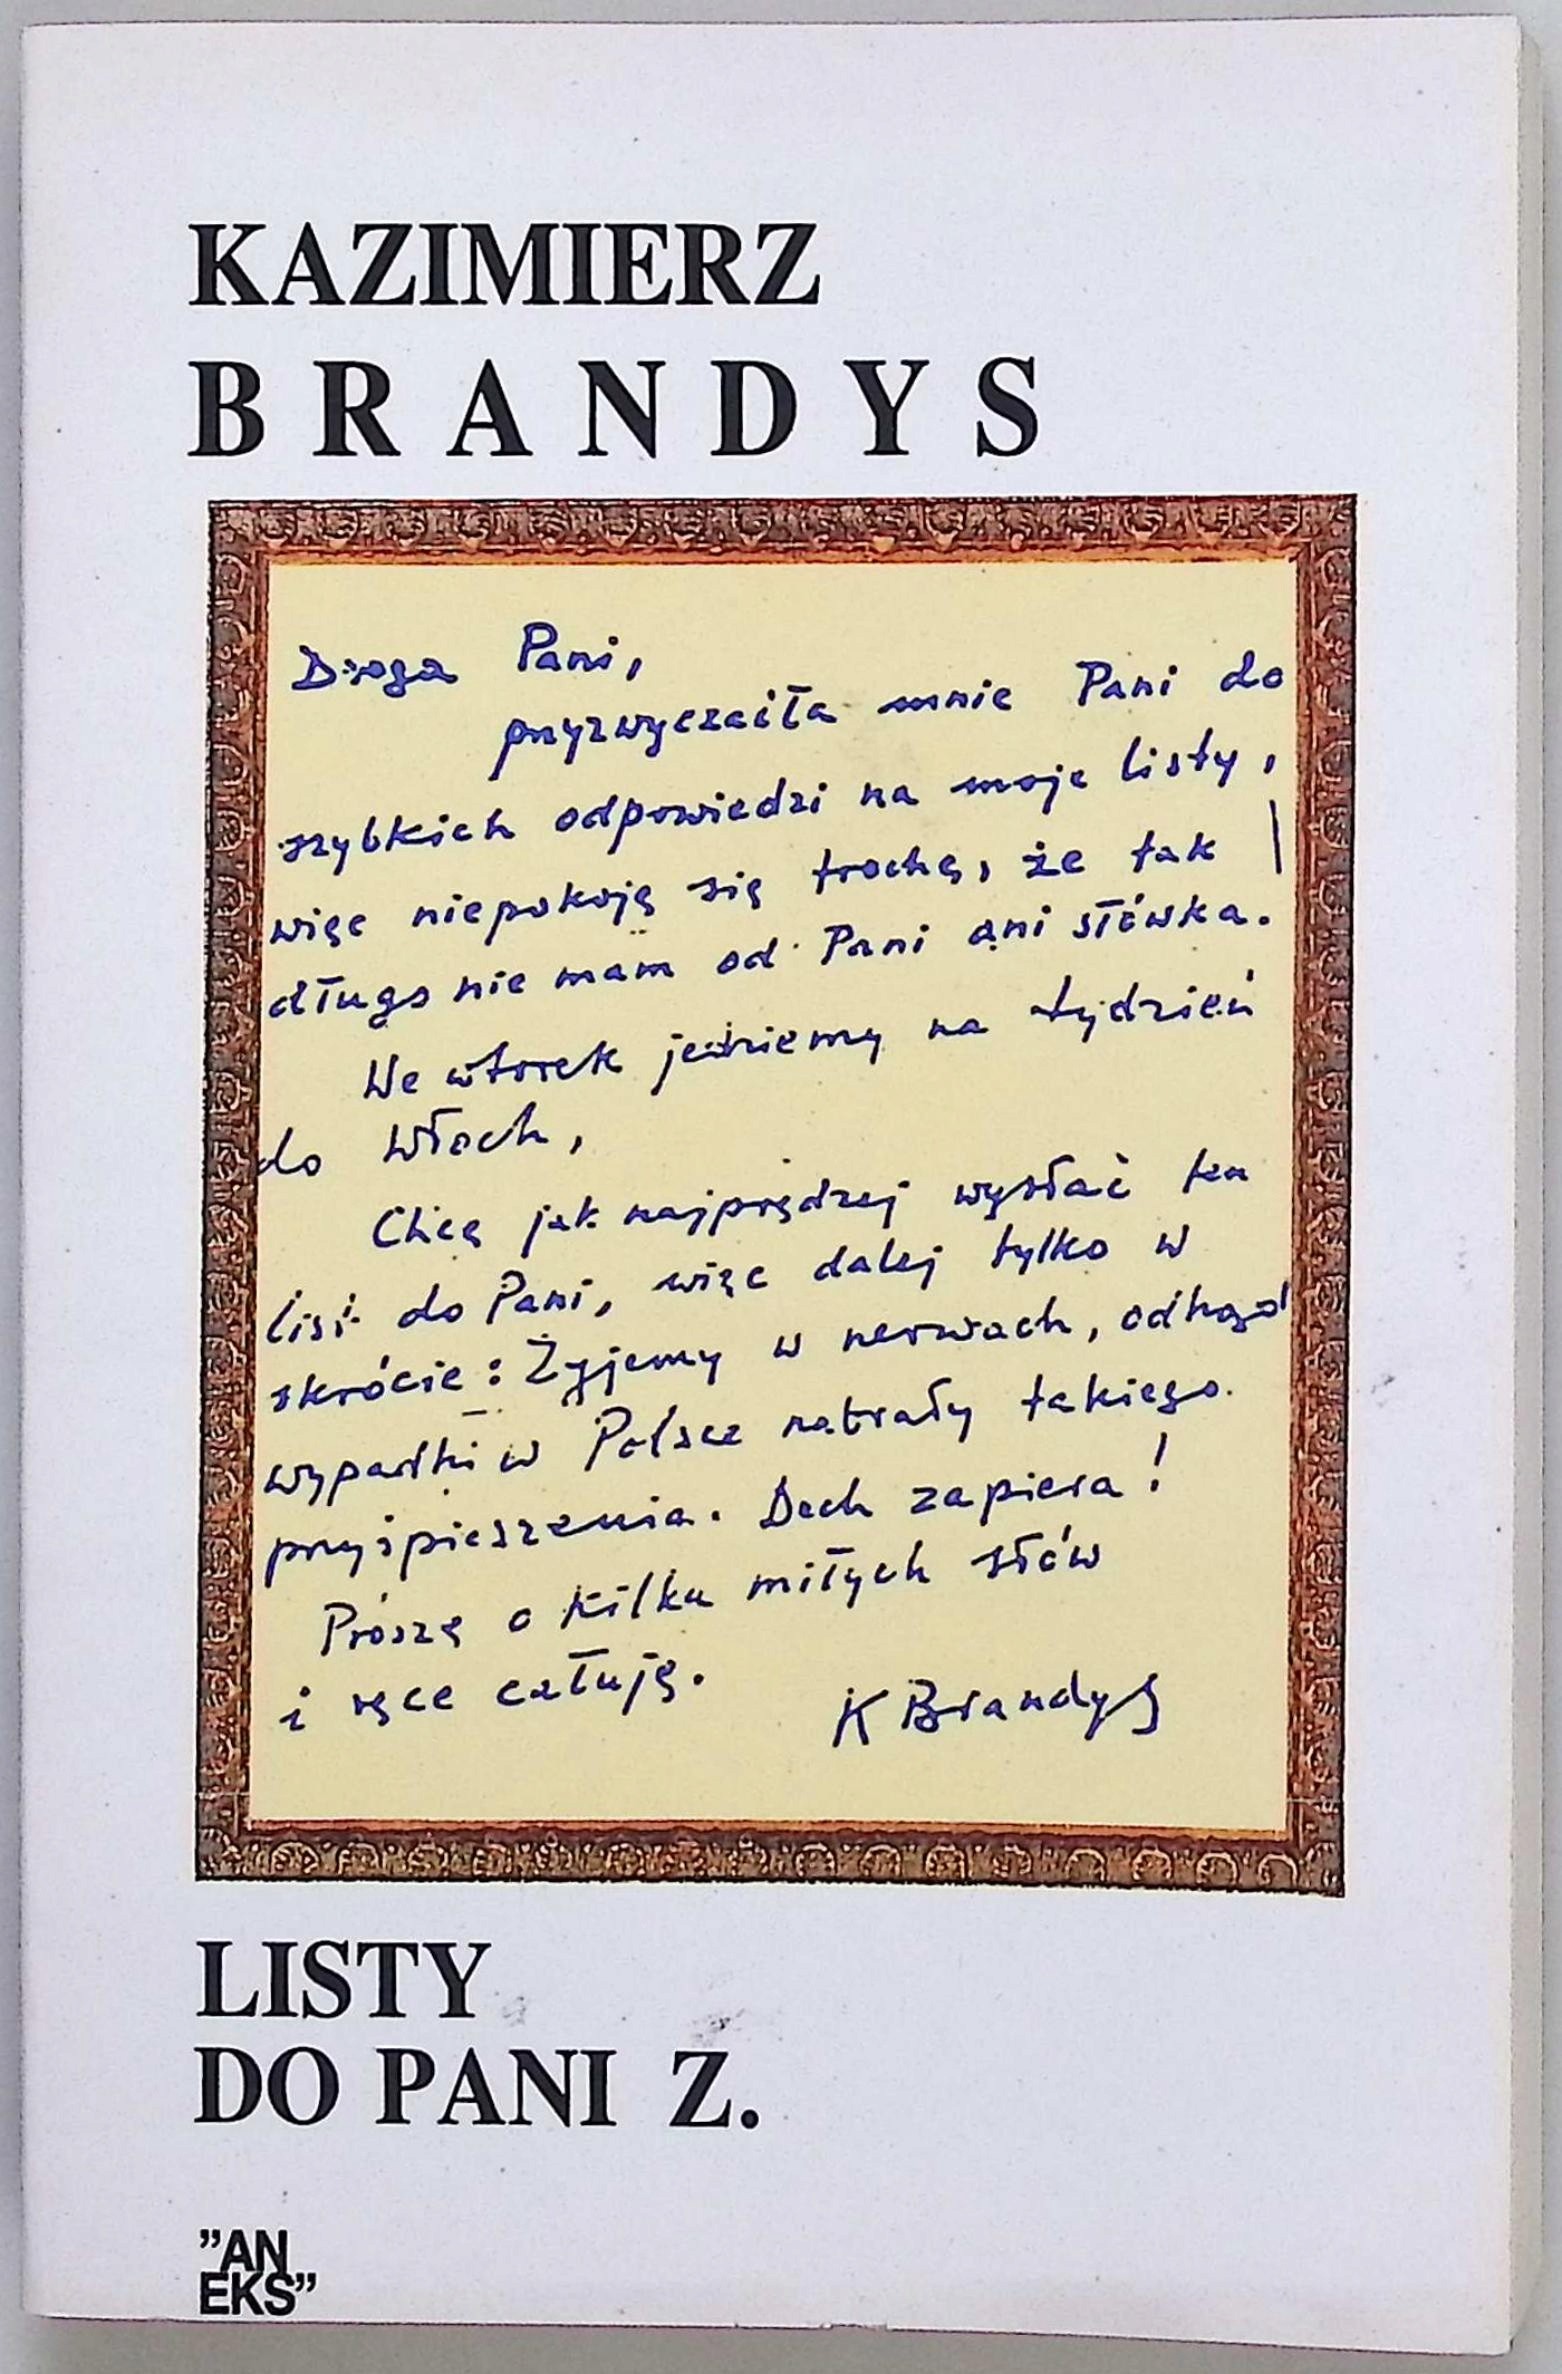 KAZIMIERZ
BRANDYS
Droga Pani,
przyzwyczaiła mnie Pani do
szybkich odpowiedzi na moje listy,
więc niepokoję się trochę, że tak
długo nie mam od Pani ani słówka.
We wtorek jedziemy na tydzień
do Włoch,
Chcę jak najprędzej wysłać ten
list do Pani, więc dalej tylko w
skrócie: Żyjemy w nerwach, odkąd
wypadki w Polsce nabrały takiego
przyśpieszenia. Dech zapiera!
Proszę o kilka miłych słów
i ręce całuję.
K Brandys
LISTY
DO PANI Z.
”AN
EKS”